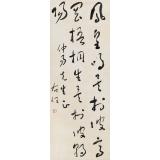 鳳皇鳴矣於彼高
岡梧桐生矣於彼朝
陽
仲 先生正
右任